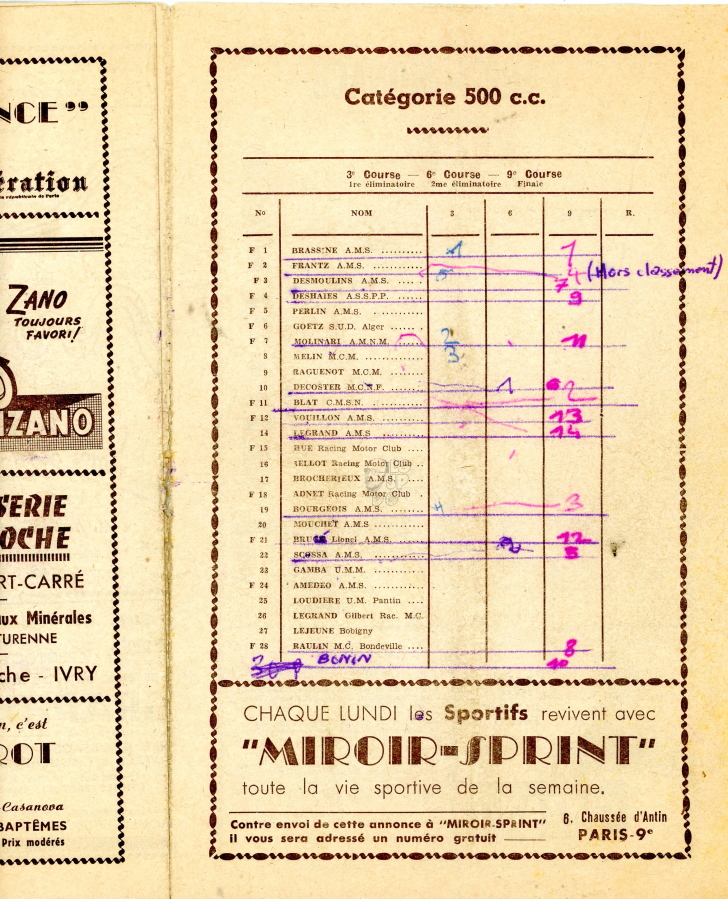 NCE”
ération
ZANO
TOUJOURS
FAVORI!
NZANO
SERIE
OCHE
RT-CARRÉ
aux Minérales
TURENNE
che - IVRY
n, c'est
ROT
Casanova
BAPTÊMES
Prix modérés
Catégorie 500 c.c.
3e Course — 6e Course — 9e Course
1re éliminatoire 2me éliminatoire Finale
No NOM 3 6 9 R.
F 1 BRASSINE A.M.S. .......... 1 1
F 2 FRANTZ A.M.S. ............ 4 (Hors classement)
F 3 DESMOULINS A.M.S. .... . 5 7
F 4 DESHAIES A.S.S.P.P. ...... 9
F 5 PERLIN A.M.S. ............
F 6 GOETZ S.U.D. Alger ...... .
F 7 MOLINARI A.M.N.M. ...... 2 11
8 MELIN M.C.M. ............. 3
9 RAGUENOT M.C.M. ........
10 DECOSTER M.C.N.F. ...... 1 2
F 11 BLAT C.M.S.N. ............
F 12 VOUILLON A.M.S. ......... 13
14 LEGRAND A.M.S .......... 14
F 15 HUE Racing Motor Club ....
16 SELLOT Racing Motor Club ..
17 BROCHERIEUX A.M.S. ......
F 18 ADNET Racing Motor Club .
19 BOURGEOIS A.M.S. ........ 4 3
20 MOUCHET A.M.S ..........
F 21 Lionel A.M.S. .......... 12
22 SCOSSA A.M.S. ............ 5
23 GAMBA U.M.M. ............
F 24 AMEDEO A.M.S. ...........
25 LOUDIERE U.M. Pantin ....
26 LEGRAND Gilbert Rac. M.C.
27 LEJEUNE Bobigny
F 28 RAULIN M.C. Bondeville .... 8
BONIN 10
CHAQUE LUNDI les Sportifs revivent avec
"MIROIR-SPRINT"
toute la vie sportive de la semaine.
Contre envoi de cette annonce à "MIROIR-SPRINT"
il vous sera adressé un numéro gratuit
6, Chaussée d'Antin
PARIS-9e